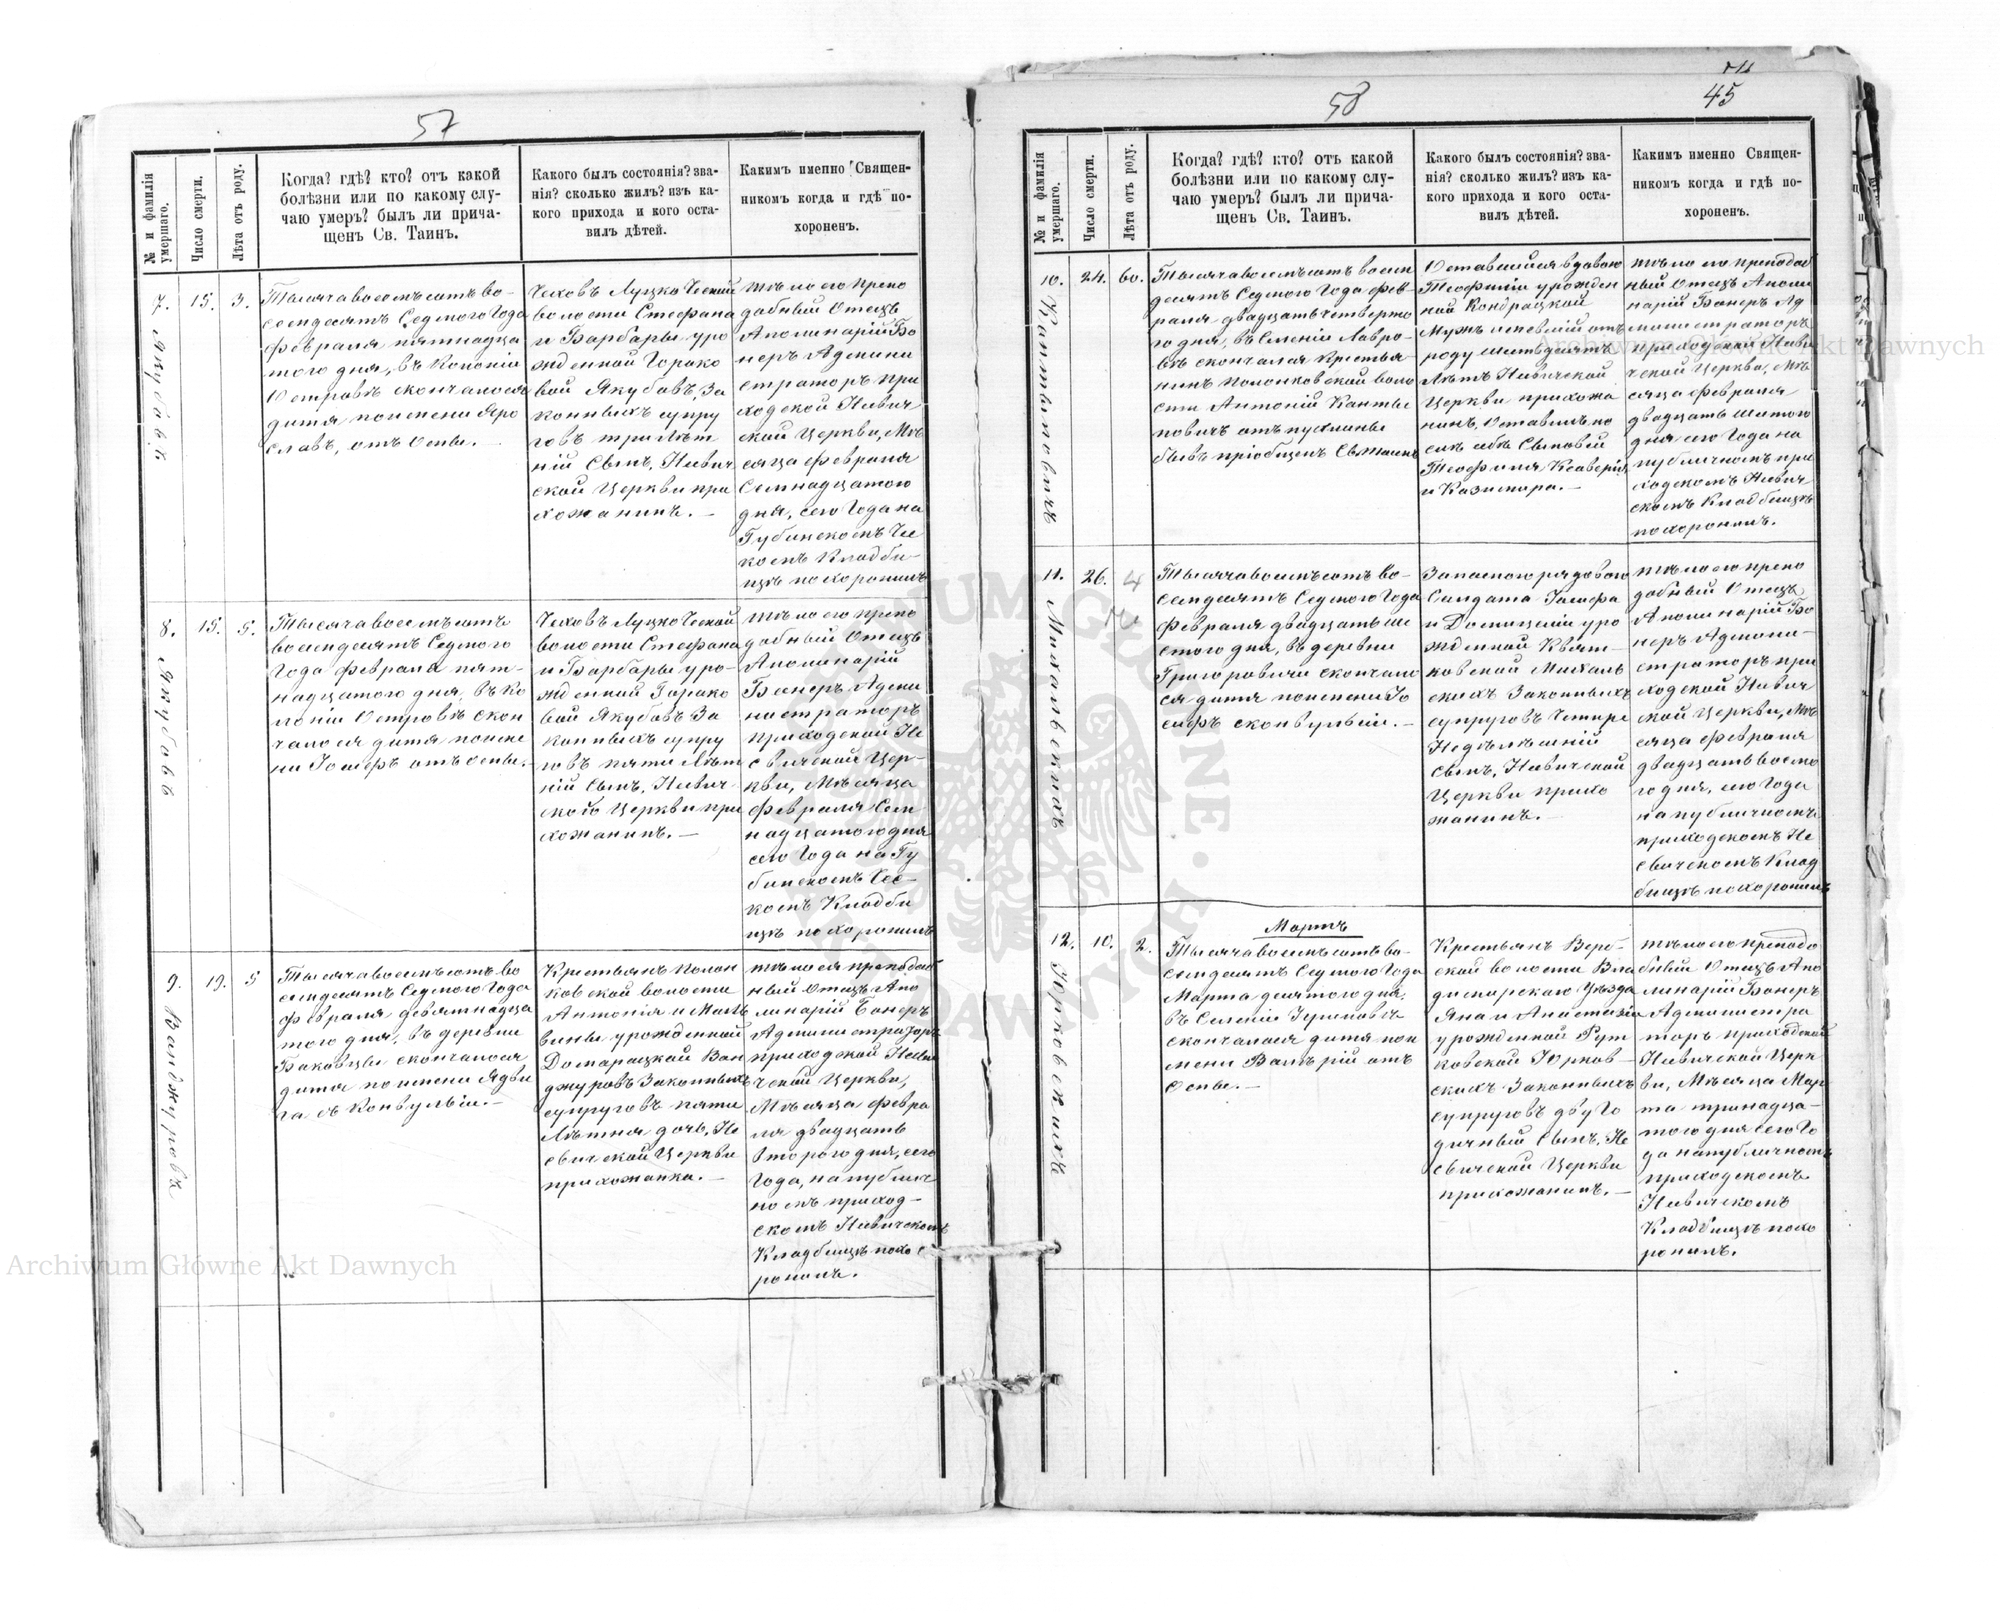 57
№ и фамилія умершаго.
Число смерти.
Лѣта отъ роду.
Когда? гдѣ? кто? отъ какой
болѣзни или по какому слу-
чаю умеръ? былъ ли прича-
щенъ Св. Таинъ.
Какого былъ состоянія? зва-
нія? сколько жилъ? изъ ка-
кого прихода и кого оста-
вилъ дѣтей.
Какимъ именно Священ-
никомъ когда и гдѣ по-
хороненъ.
7.
15.
3.
Тысяча восемьсотъ во-
семдесятъ Седмого Года
Февраля пятнадца
того дня, въ Колоніи
Островъ скончалося
дитя по имени Яро
славъ, отъ Оспы. -
Чеховъ Луцко Ческой
волости Стефана
и Барбары уро
жденной Горако
вой Якубовъ, За
конныхъ супру
говъ трилѣт
ній Сынъ, Невич
ской Церкви при
хожанинъ. -
тѣло его препо
добный Отецъ
Аполинарій Бо
неръ Админи
страторъ при
ходской Невич
ской Церкви, Мѣ
сяца Февраля
Семнадцатого
дня, сего Года на
Губинскомъ Че
комъ Кладби-
щѣ похоронилъ
8.
15.
5.
Тысяча восемьсотъ
восемдесятъ Седмого
Года Февраля пят-
надцатого дня, въ Ко
лоніи Островъ скон
чалося дитя по име
ни Іосифъ отъ Оспы. -
Чеховъ Луцко Ческой
волости Стефана
и Барбары уро-
жденной Горако
вой Якубовъ За
конныхъ супру
говъ пяти лѣт
ній Сынъ, Невич-
ской Церкви при
хожанинъ. -
тѣло его препо
добный Отецъ
Аполинарій
Бонеръ Админи
нистраторъ
приходской Не
свичской Цер-
кви, Мѣсяца
Февраля Сем
надцатого дня
сего Года на Гу
бинскомъ Чес-
комъ Кладби
щѣ похоронилъ
9. Ванджуровъ
19.
5
Тысяча восемьсотъ во
семдесятъ Седмого Года
Февраля девятнадца
того дня, въ деревни
Баковцы скончалося
дитя по имени Ядви
га съ Конвульсіи. -
Крестьянъ Полон
ковской волости
Антонія и Маль
вины урожденной
Домарацкой Ван
джуровъ Законныхъ
супруговъ пяти
лѣтня дочь, Не
свичской Церкви
прихожанка. -
тѣло ея преподоб
ный Отецъ Апо
линарій Бонеръ
Администраторъ
приходской Невич
ческой Церкви,
Мѣсяца Февра
ля двадцать
второго дня, сего
Года, на публич
номъ приход-
скомъ Невичскомъ
Кладбищѣ похо
ронилъ.
58
45
№ и фамилія умершаго.
Число смерти.
Лѣта отъ роду.
Когда? гдѣ? кто? отъ какой
болѣзни или по какому слу-
чаю умеръ? былъ ли прича-
щенъ Св. Таинъ.
Какого былъ состоянія? зва-
нія? сколько жилъ? изъ ка-
кого прихода и кого оста-
вилъ дѣтей.
Какимъ именно Священ-
никомъ когда и гдѣ по-
хороненъ.
10. Кантыповичъ
24.
60.
Тысяча восемьсотъ восем
десятъ Седмого Года Фев-
раля двадцать четверто
го дня, въ Селеніи Лавро-
въ скончался Крестья-
нинъ Полонковской воло
сти АнтонійКанты
повичъ отъ пухлины
бывъ пріобщенъ Св. таинъ
Оставшійся вдовою
Теофиліи урожден
ной Кондрацкой
Мужъ имѣвшій отъ
роду шестьдесятъ
лѣтъ Невичской
Церкви прихожа
нинъ, Оставилъ по
себѣ Сыновей
Теофиля Ксаверія
и Казимира. -
тѣло его преподоб
ный Отецъ Аполи
нарій Бонеръ Ад
министраторъ
приходской Неви
чской Церкви, Мѣ
сяца Февраля
двадцать шестого
дня сего Года на
публичномъ при
ходскомъ Невич
скомъ Кладбищѣ
похоронилъ.
11. Михальскихъ
26.
4
Тысяча восемьсотъ во-
семдесятъ Седмого Года
Февраля двадцать ше
стого дня, въ деревни
Григоровичи скончало
ся дитя по имени Іо
сифъ съ конвульсіи. -
Запасного рядового
Солдата Іосифа
и Домицеліи уро
жденной Квят-
ковской Михаль
скихъ Законныхъ
супруговъ Четыре
Недѣльный
Сынъ, Невичской
Церкви прихо
жанинъ. -
тѣло его препо
добный Отецъ
Аполинарій Бо
неръ Админи-
страторъ при
ходской Невич
ской Церкви, Мѣ
сяца Февраля
двадцать восмо
го дня, сего Года
на публичномъ
приходскомъ Не
свичскомъ Клад
бищѣ похоронилъ
Мартъ
12. Юрковскихъ
10.
2.
Тысяча восемьсотъ во-
семдесятъ Седмого Года
Марта десятого дня,
въ Селеніи
скончалося дитя по и
мени Валѣрій отъ
Оспы. -
Крестьянъ Верб-
ской волости Вла
димирского Уѣзда
Яна и Анастазіи
урожденной Рут
ковской Юрков-
скихъ Законныхъ
супруговъ двуГо
дичный Сынъ, Не
свичской Церкви
прихожанинъ. -
тѣло его преподо
бный Отецъ Апо
линарій Бонеръ
Администра
торъ приходской
Невичской Церк
ви, Мѣсяца Мар
та тринадца-
того дня сего Го
да на публичномъ
приходскомъ
Невичскомъ
Кладбищѣ похо
ронилъ.
Archiwum Główne Akt Dawnych
Archiwum Główne Akt Dawnych